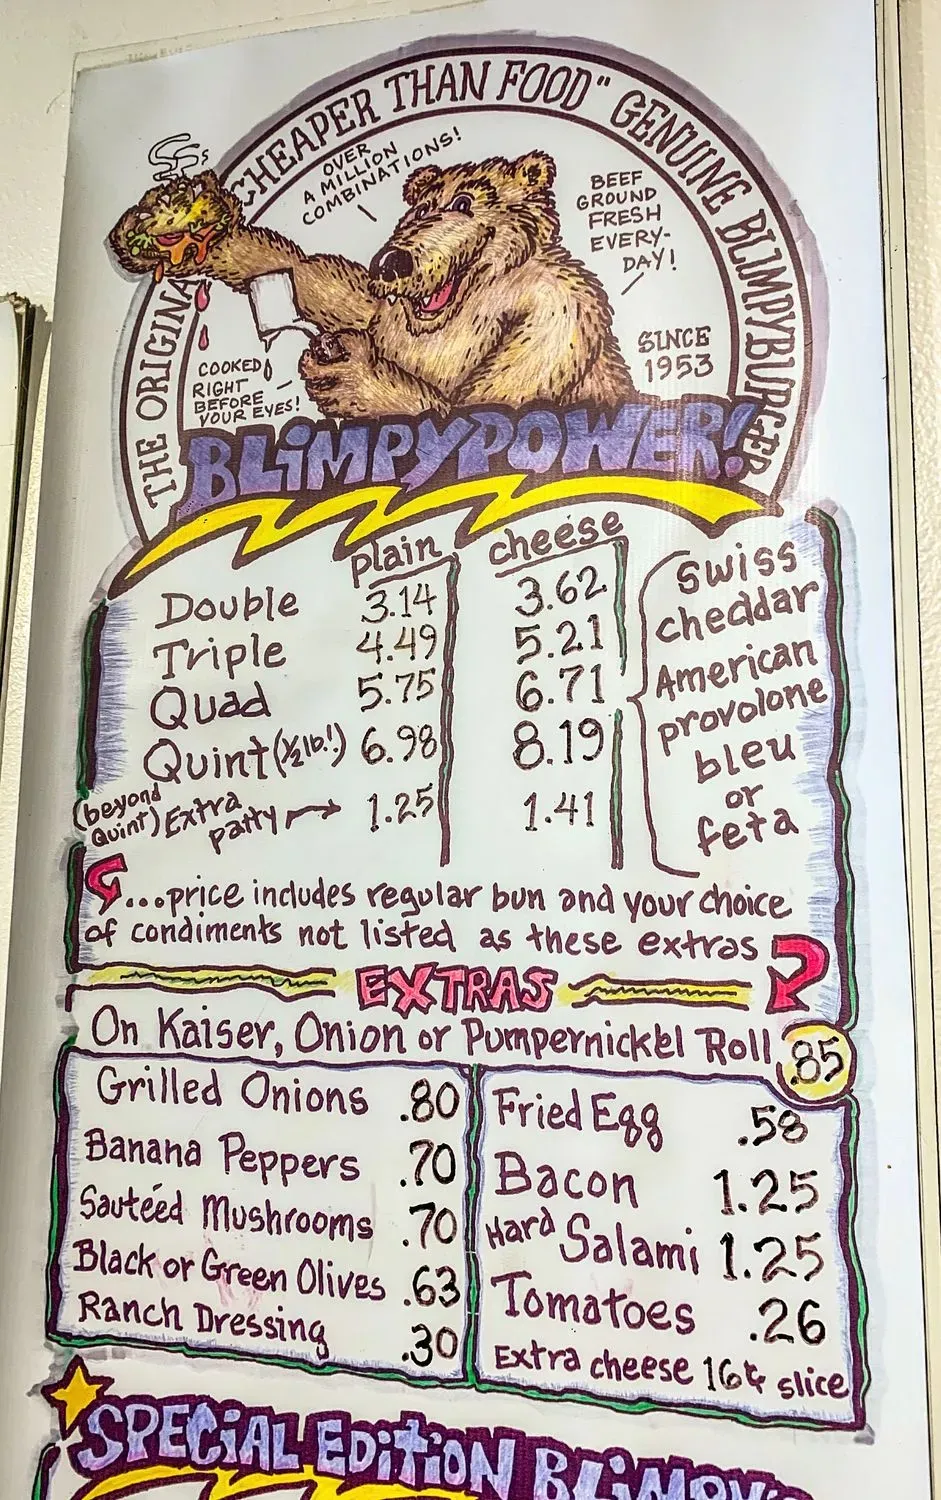 THE ORIGINAL "CHEAPER THAN FOOD" GENUINE BLIMPYBURGER
OVER
A MILLION
COMBINATIONS!
BEEF
GROUND
FRESH
EVERY-
DAY!
SINCE
1953
COOKED
RIGHT
BEFORE
YOUR EYES!
BLIMPYPOWER!
plain cheese
Double 3.14 3.62
Triple 4.49 5.21
Quad 5.75 6.71
Quint (½ lb.!) 6.98 8.19
(beyond Quint) Extra patty → 1.25 1.41
Swiss
cheddar
American
provolone
bleu
or
feta
...price includes regular bun and your choice
of condiments not listed as these extras
EXTRAS
On Kaiser, Onion or Pumpernickel Roll .85
Grilled Onions .80
Banana Peppers .70
Sautéed Mushrooms .70
Black or Green Olives .63
Ranch Dressing .30
Fried Egg .58
Bacon 1.25
Hard Salami 1.25
Tomatoes .26
Extra cheese 16¢ slice
SPECIAL EDITION BLIMPY